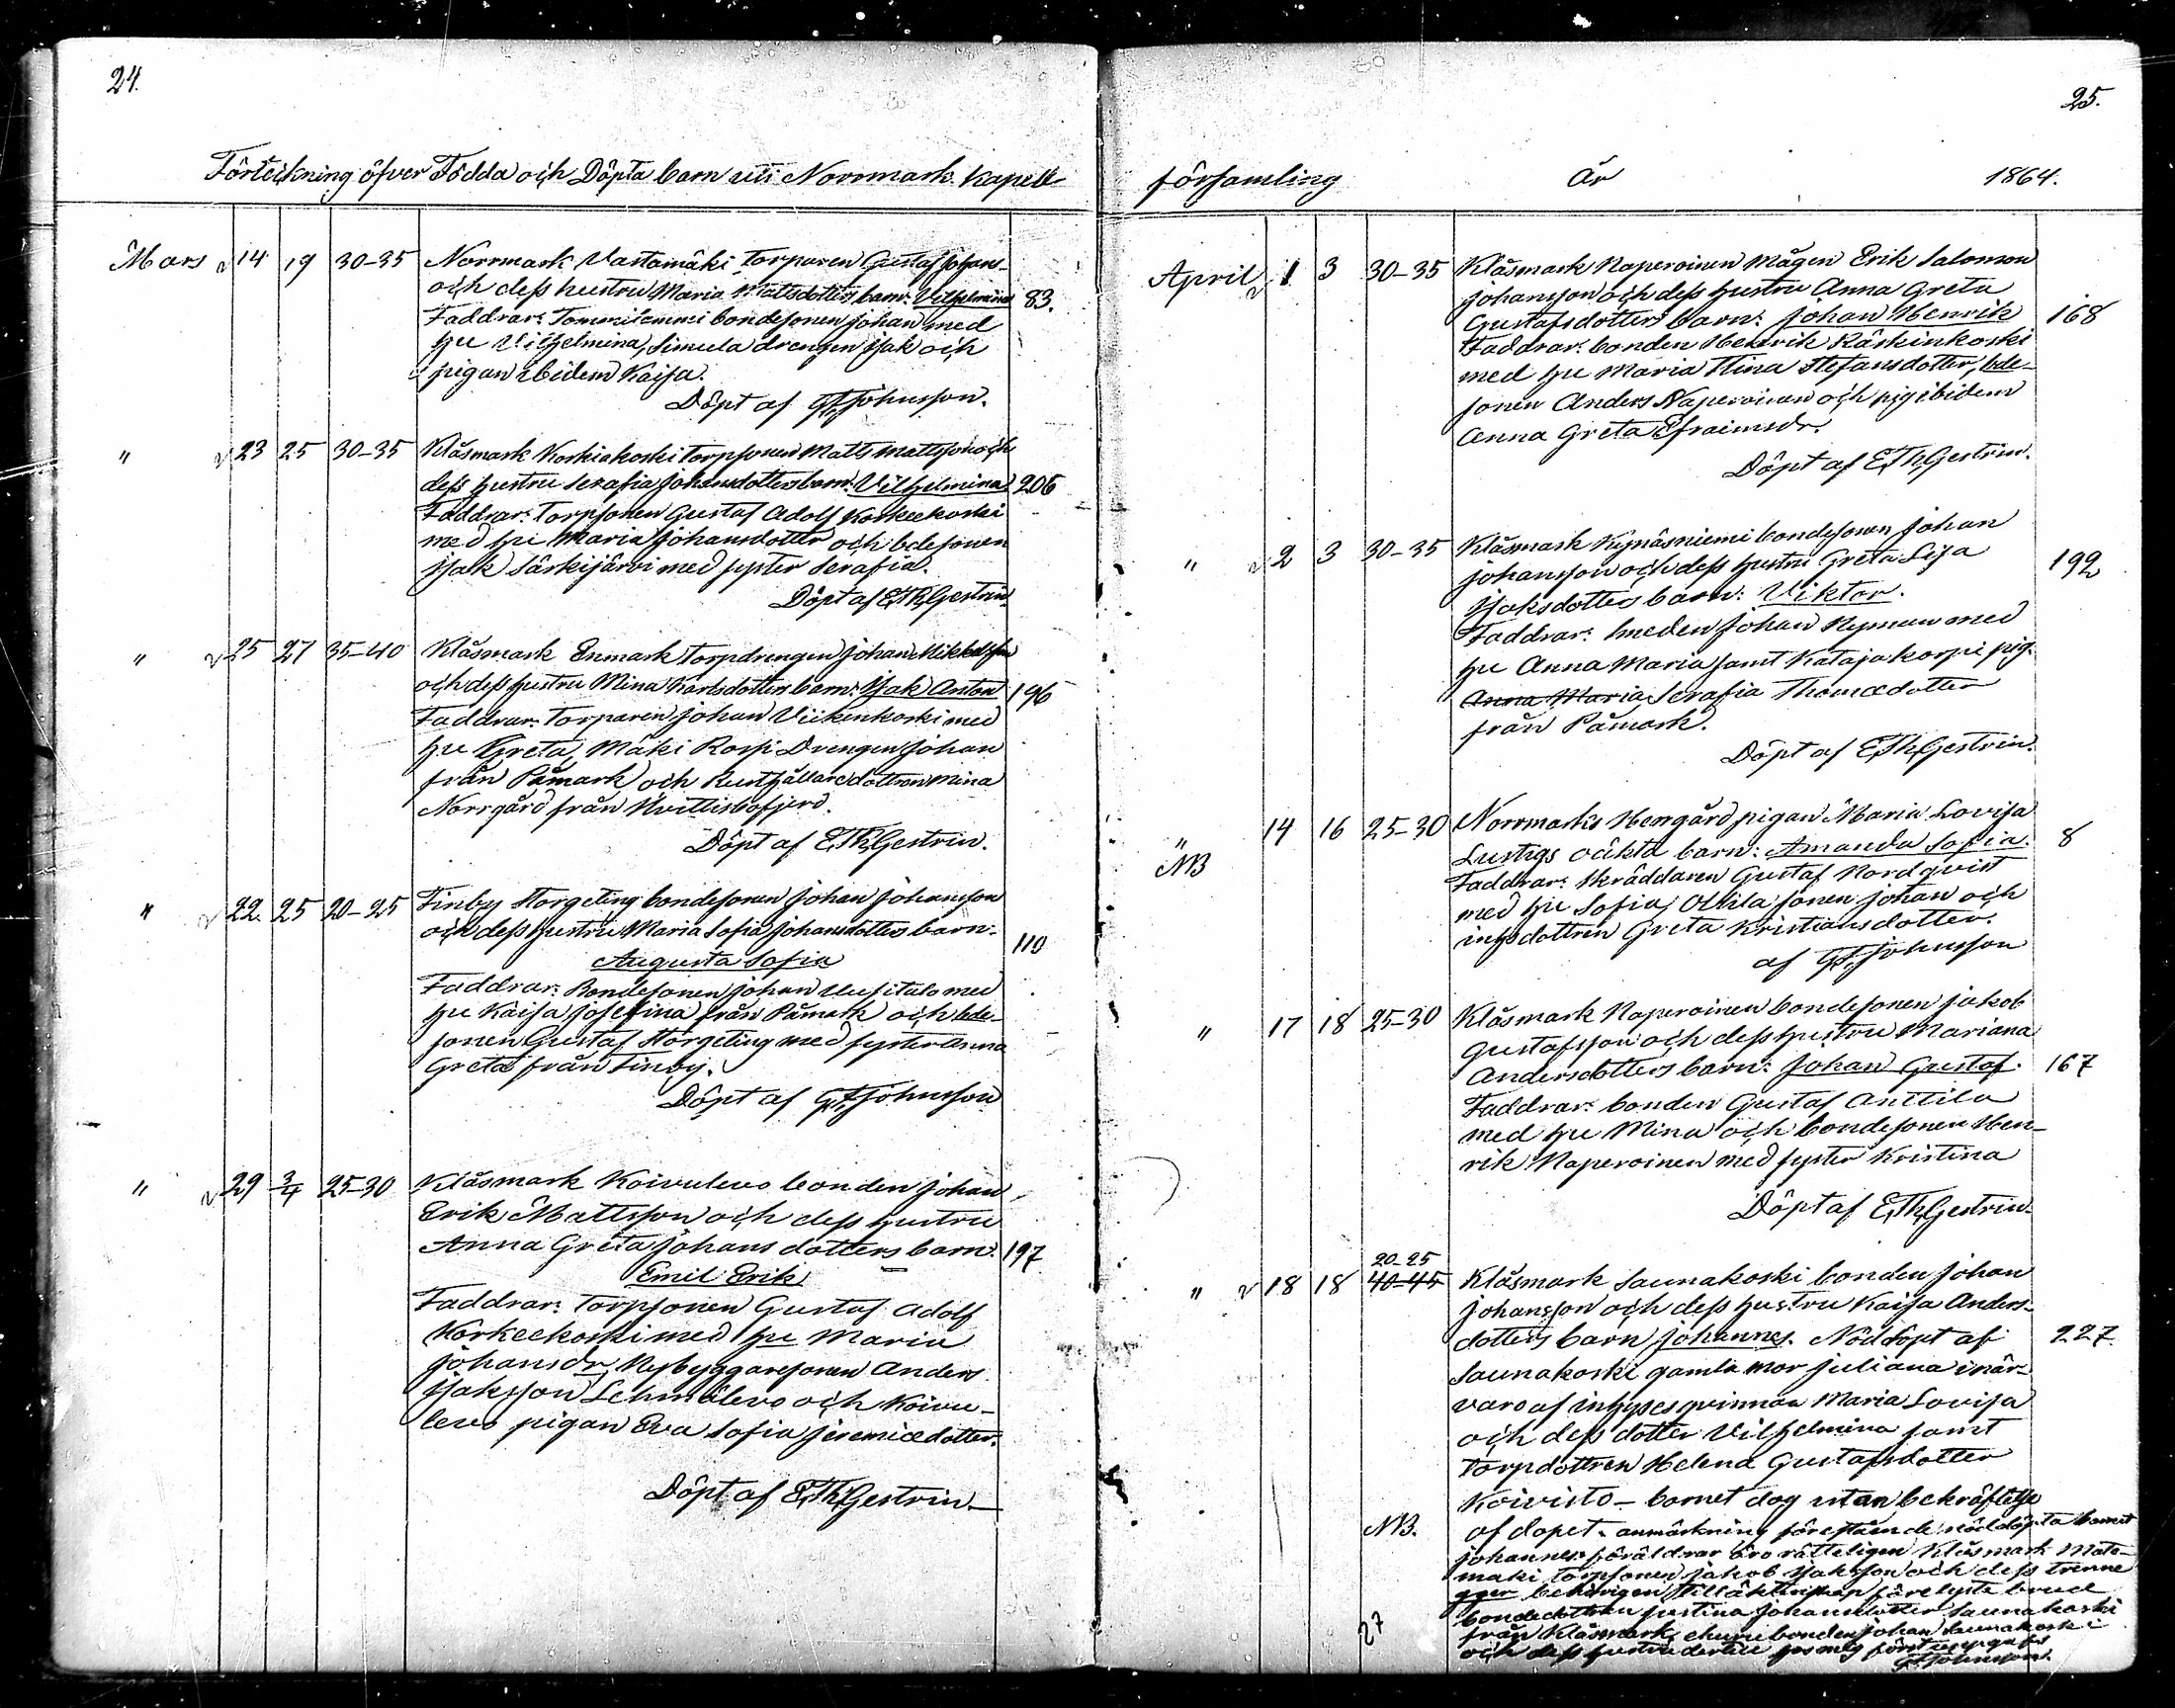 24.
Förteckning öfver Födda och Döpta barn uti Norrmark Kapell
Mars 14 19 30-35 Norrmark Vastamäki torparen Gustaf Johans-
och dess hustru Maria Mattsdotters barn: Vilhelmina 83.
Faddrar: Tommilemmi bondesonen Johan med
hu Vilhelmina, Simula drengen Isak och
pigan ibidem Kaisa.
Döpt af G.F. Johnsson.
" 23 25 30-35 Klåsmark Korkiakoski torpsonen Matts Mattsson och
dess hustru Serafia Johansdotters barn: Vilhelmina 206
Faddrar: Torpsonen Gustaf Adolf Korkeekoski
med hu Maria Johansdotter och bdesonen
Isak Särkijärvi med syster Serafia.
Döpt af E.Th. Gestrin.
" 25 27 35-40 Klåsmark Enmark torpdrengen Johan Mikkelsson
och dess hustru Mina Karlsdotters barn: Isak Anton 196
Faddrar: Torparen Johan Viikenkoski med
hu Greta, Mäki Korpi Drengen Johan
från Påmark och Rusthållaredottren Mina
Norrgård från Hvittisbofjerd.
Döpt af E.Th. Gestrin.
" 22. 25 20-25 Finby Storgeting bondesonen Johan Johansson
och dess hustru Maria Sofia Johansdotters barn: 110
Augusta Sofia
Faddrar: Bondesonen Johan Uusitalo med
hu Kaisa Josefina från Påmark och bde-
sonen Gustaf Storgeting med syster Anna
Greta från Finby.
Döpt af G.F. Johnsson
" 29 3/4 25-30 Klåsmark Koivulevo bonden Johan
Erik Mattsson och dess hustru
Anna Greta Johans dotters barn: 197
Emil Erik
Faddrar: Torpsonen Gustaf Adolf
Korkeekoski med hu Maria
Johansdr, Nybyggaresonen Anders
Isaksson Lehmälevo och Koivu-
levo pigan Eva Sofia Jeremiædotter.
Döpt af E.Th. Gestrin.
25.
församling år 1864.
April 1 3 30-35 Klåsmark Naperoinen Mågen Erik Salomon
Johansson och dess hustru Anna Greta
Gustafsdotters barn: Johan Henrik 168
Faddrar: bonden Henrik Käskinkoski
med hu Maria Stina Stefansdotter, bde-
sonen Anders Naperoinen och pig ibidem
Anna Greta Efraimsdr.
Döpt af E.Th. Gestrin.
" 2 3 30-35 Klåsmark Kynäsniemi bondesonen Johan
Johansson och dess hustru Greta Lisa 192
Isaksdotters barn: Viktor.
Faddrar: smeden Johan Nyman med
hu Anna Maria samt Katajakorpi pig.
Anna Maria Serafia Thomædotter
från Påmark.
Döpt af E.Th. Gestrin.
" NB 14 16 25-30 Norrmarks Hemgård pigan Maria Lovisa
Lustigs oäkta barn: Amanda Sofia. 8
Faddrar: Skräddaren Gustaf Nordqvist
med hu Sofia, Ollila sonen Johan och
inhsdottren Greta Kristiansdotter.
af G.F. Johnsson
" 17 18 25-30 Klåsmark Naperoinen bondesonen Jakob
Gustafsson och dess hustru Mariana
Andersdotters barn: Johan Gustaf. 167
Faddrar: bonden Gustaf Anttila
med hu Mina och bondesonen Hen-
rik Naperoinen med syster Kristina
Döpt af E.Th. Gestrin.
20-25
" 18 18 40-45 Klåsmark Saunakoski bonden Johan
Johansson och dess hustru Kaisa Anders-
dotters barn Johannes. Nöddöpt af 227.
Saunakoski gamla mor Juliana i när-
varo af inhyses qvinnan Maria Lovisa
och dess dotter Vilhelmina samt
torpdottren Helena Gustafsdotter
Koivisto - barnet dog utan bekräftelse
NB. af dopet. anmärkning förestående nöddöpta barnet
Johannes: föräldrar äro rätteligen Klåsmark Mäte-
maki torpsonen Jakob Isaksson och dess trenne
gger behörigen till äktenskap förelysta brud
bondedottren Justina Johansdotter Saunakoski
27 från Klåsmark, ehuru bonden Johan Saunakoski
och dess hustru dertill hos mig först uppgafs
G.F. Johnsson.